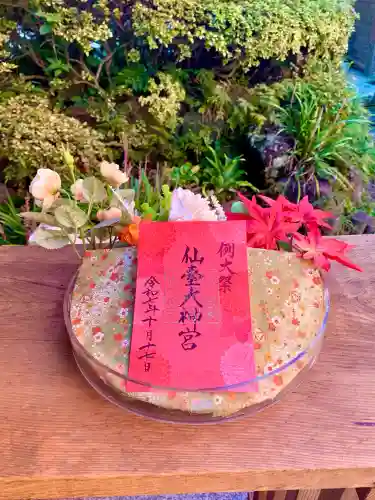 例大祭
仙臺大神宮
令和七年十月十七日